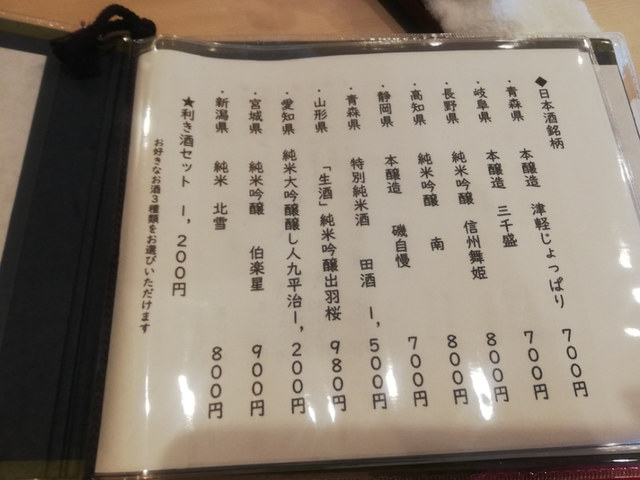 ◆日本酒銘柄
・青森県 本醸造 津軽じょっぱり 700円
・岐阜県 本醸造 三千盛 700円
・長野県 純米吟醸 信州舞姫 800円
・高知県 純米吟醸 南 800円
・静岡県 本醸造 磯自慢 700円
・青森県 特別純米酒 田酒 1,500円
・山形県 「生酒」純米吟醸出羽桜 980円
・愛知県 純米大吟醸醸し人九平治1,200円
・宮城県 純米吟醸 伯楽星 900円
・新潟県 純米 北雪 800円
★利き酒セット 1,200円
お好きなお酒3種類をお選びいただけます